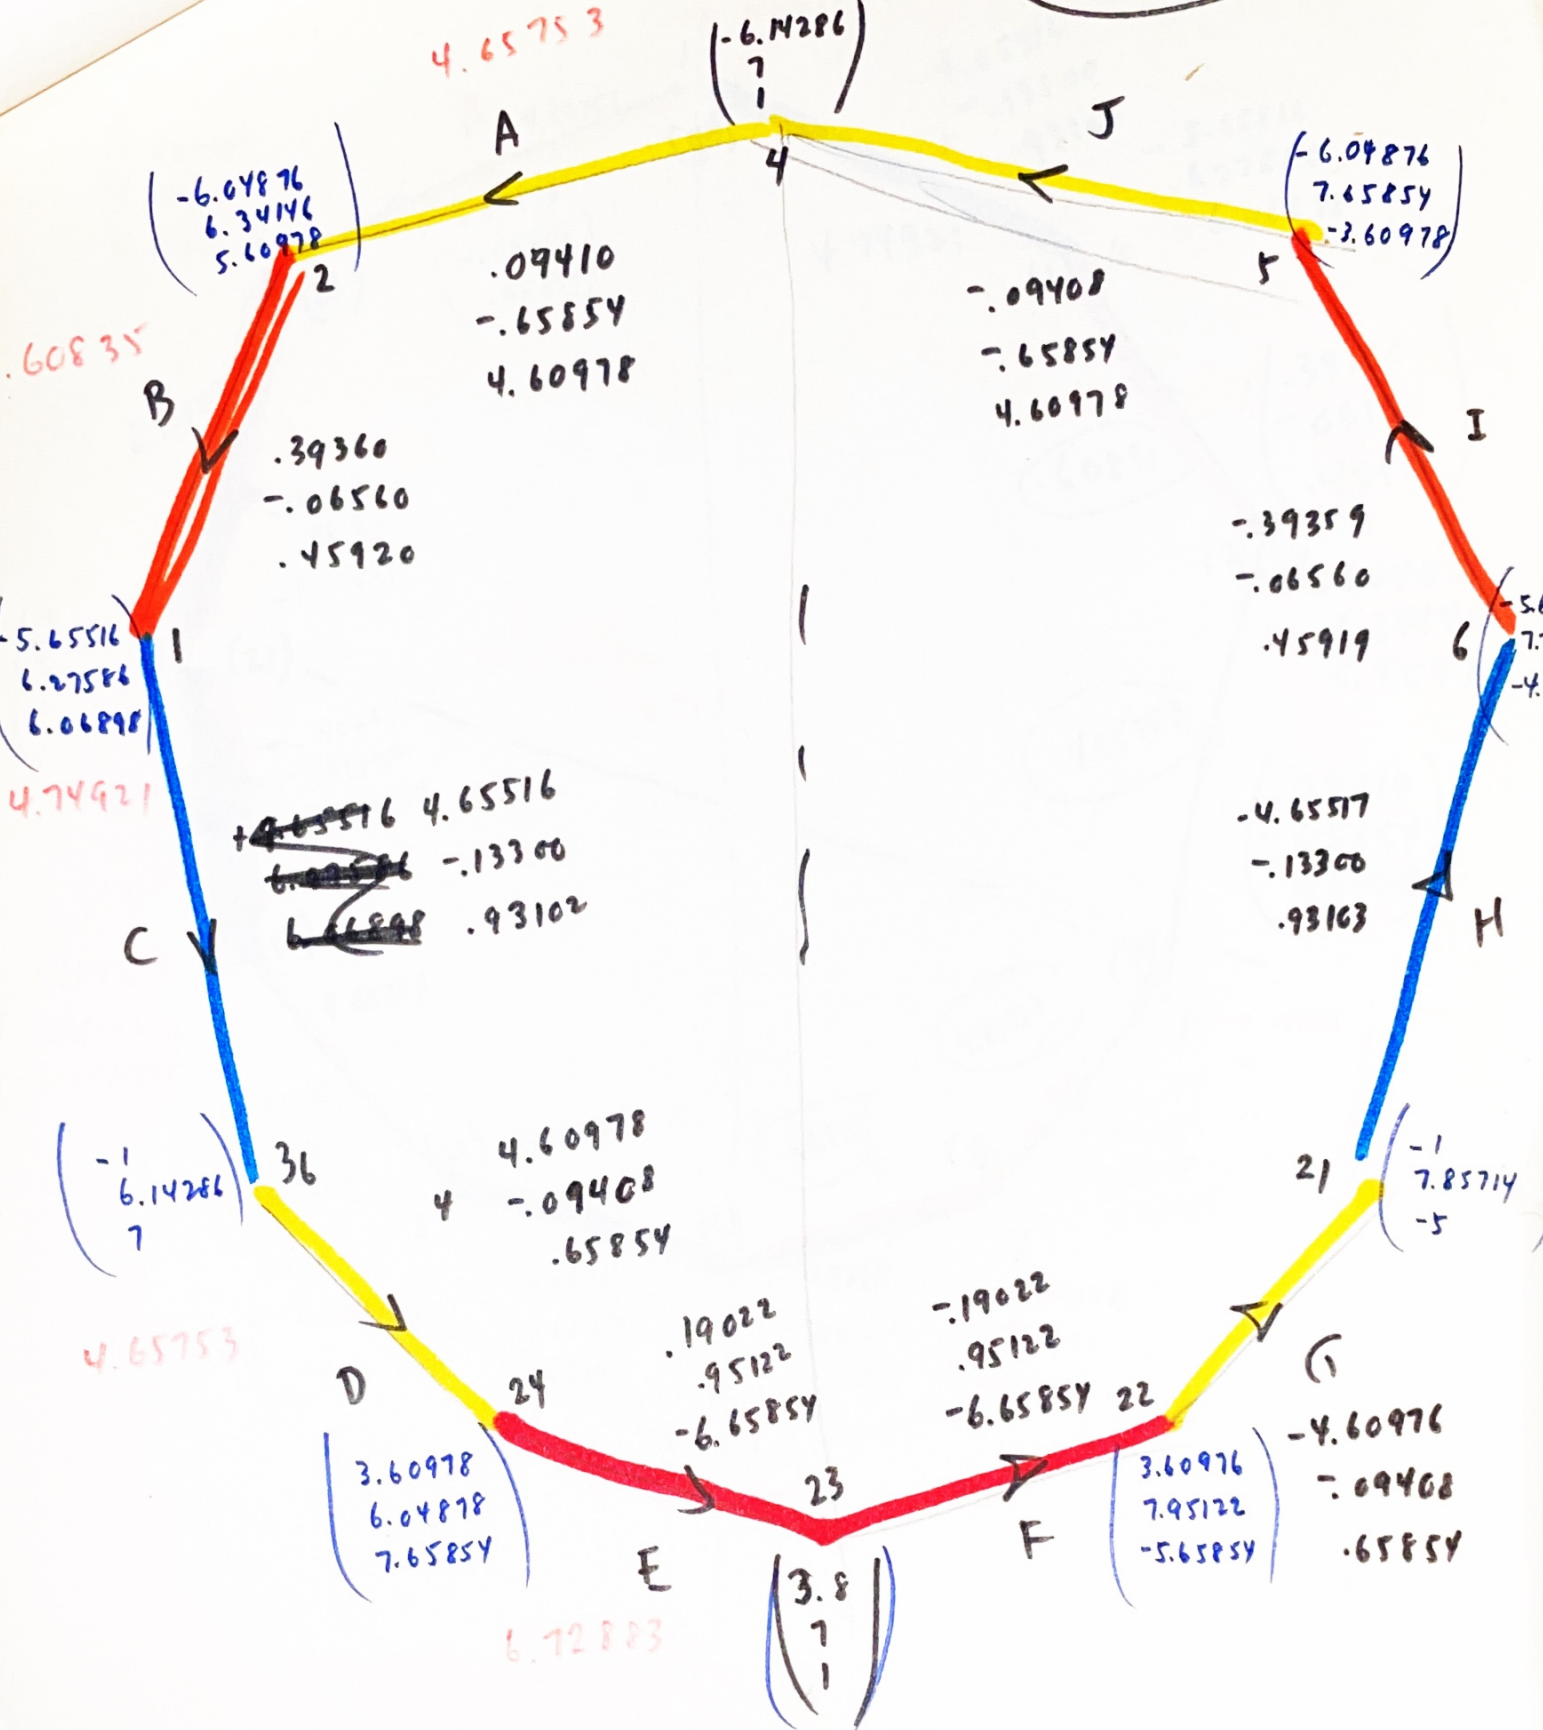 4.65753
-6.14286
7
1
A
J
4
-6.04876
6.34146
5.60978
2
-6.04876
7.65854
-3.60978
5
.09410
-.65854
4.60978
-.09408
-.65854
4.60978
.60835
B
.39360
-.06560
.45920
I
-.39359
-.06560
.45919
-5.65516
6.27586
6.06898
1
6
-5.6
7.
-4.
4.74921
4.65516
-.13300
.93102
C
-4.65517
-.13300
.93103
H
-1
6.14286
7
36
4.60978
4 -.09408
.65854
21
-1
7.85714
-5
4.65753
D
24
.19022
.95122
-6.65854
-.19022
.95122
-6.65854
22
G
-4.60976
-.09408
.65854
3.60978
6.04878
7.65854
E
23
F
3.60976
7.95122
-5.65854
3.8
7
1
6.72883